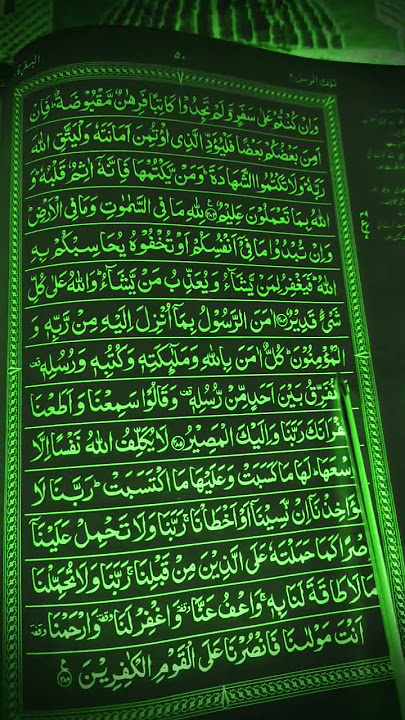 البقرة ٢
٥٠
تلك الرسل ٣
وَاِنْ كُنْتُمْ عَلٰى سَفَرٍ وَّلَمْ تَجِدُوْا كَاتِبًا فَرِهٰنٌ مَّقْبُوْضَةٌ ؕ فَاِنْ
اَمِنَ بَعْضُكُمْ بَعْضًا فَلْيُؤَدِّ الَّذِى اؤْتُمِنَ اَمَانَتَهٗ وَلْيَتَّقِ اللّٰهَ
رَبَّهٗ ؕ وَلَا تَكْتُمُوا الشَّهَادَةَ ؕ وَمَنْ يَّكْتُمْهَا فَاِنَّهٗۤ اٰثِمٌ قَلْبُهٗ ؕ وَ
اللّٰهُ بِمَا تَعْمَلُوْنَ عَلِيْمٌ ﴿۲۸۳﴾ لِلّٰهِ مَا فِى السَّمٰوٰتِ وَمَا فِى الْاَرْضِ ؕ
وَاِنْ تُبْدُوْا مَا فِىْۤ اَنْفُسِكُمْ اَوْ تُخْفُوْهُ يُحَاسِبْكُمْ بِهِ
اللّٰهُ ؕ فَيَغْفِرُ لِمَنْ يَّشَآءُ وَيُعَذِّبُ مَنْ يَّشَآءُ ؕ وَاللّٰهُ عَلٰى كُلِّ
شَىْءٍ قَدِيْرٌ ﴿۲۸۴﴾ اٰمَنَ الرَّسُوْلُ بِمَاۤ اُنْزِلَ اِلَيْهِ مِنْ رَّبِّهٖ وَ
الْمُؤْمِنُوْنَ ؕ كُلٌّ اٰمَنَ بِاللّٰهِ وَمَلٰٓئِكَتِهٖ وَكُتُبِهٖ وَرُسُلِهٖ
نُفَرِّقُ بَيْنَ اَحَدٍ مِّنْ رُّسُلِهٖ وَقَالُوْا سَمِعْنَا وَاَطَعْنَا
غُفْرَانَكَ رَبَّنَا وَاِلَيْكَ الْمَصِيْرُ ﴿۲۸۵﴾ لَا يُكَلِّفُ اللّٰهُ نَفْسًا اِلَّا
وُسْعَهَا ؕ لَهَا مَا كَسَبَتْ وَعَلَيْهَا مَا اكْتَسَبَتْ ؕ رَبَّنَا لَا
تُؤَاخِذْنَاۤ اِنْ نَّسِيْنَاۤ اَوْ اَخْطَاْنَا ۚ رَبَّنَا وَلَا تَحْمِلْ عَلَيْنَاۤ
اِصْرًا كَمَا حَمَلْتَهٗ عَلَى الَّذِيْنَ مِنْ قَبْلِنَا ۚ رَبَّنَا وَلَا تُحَمِّلْنَا
مَا لَا طَاقَةَ لَنَا بِهٖ ۚ وَاعْفُ عَنَّا وَاغْفِرْ لَنَا وَارْحَمْنَا
اَنْتَ مَوْلٰىنَا فَانْصُرْنَا عَلَى الْقَوْمِ الْكٰفِرِيْنَ ﴿۲۸۶﴾